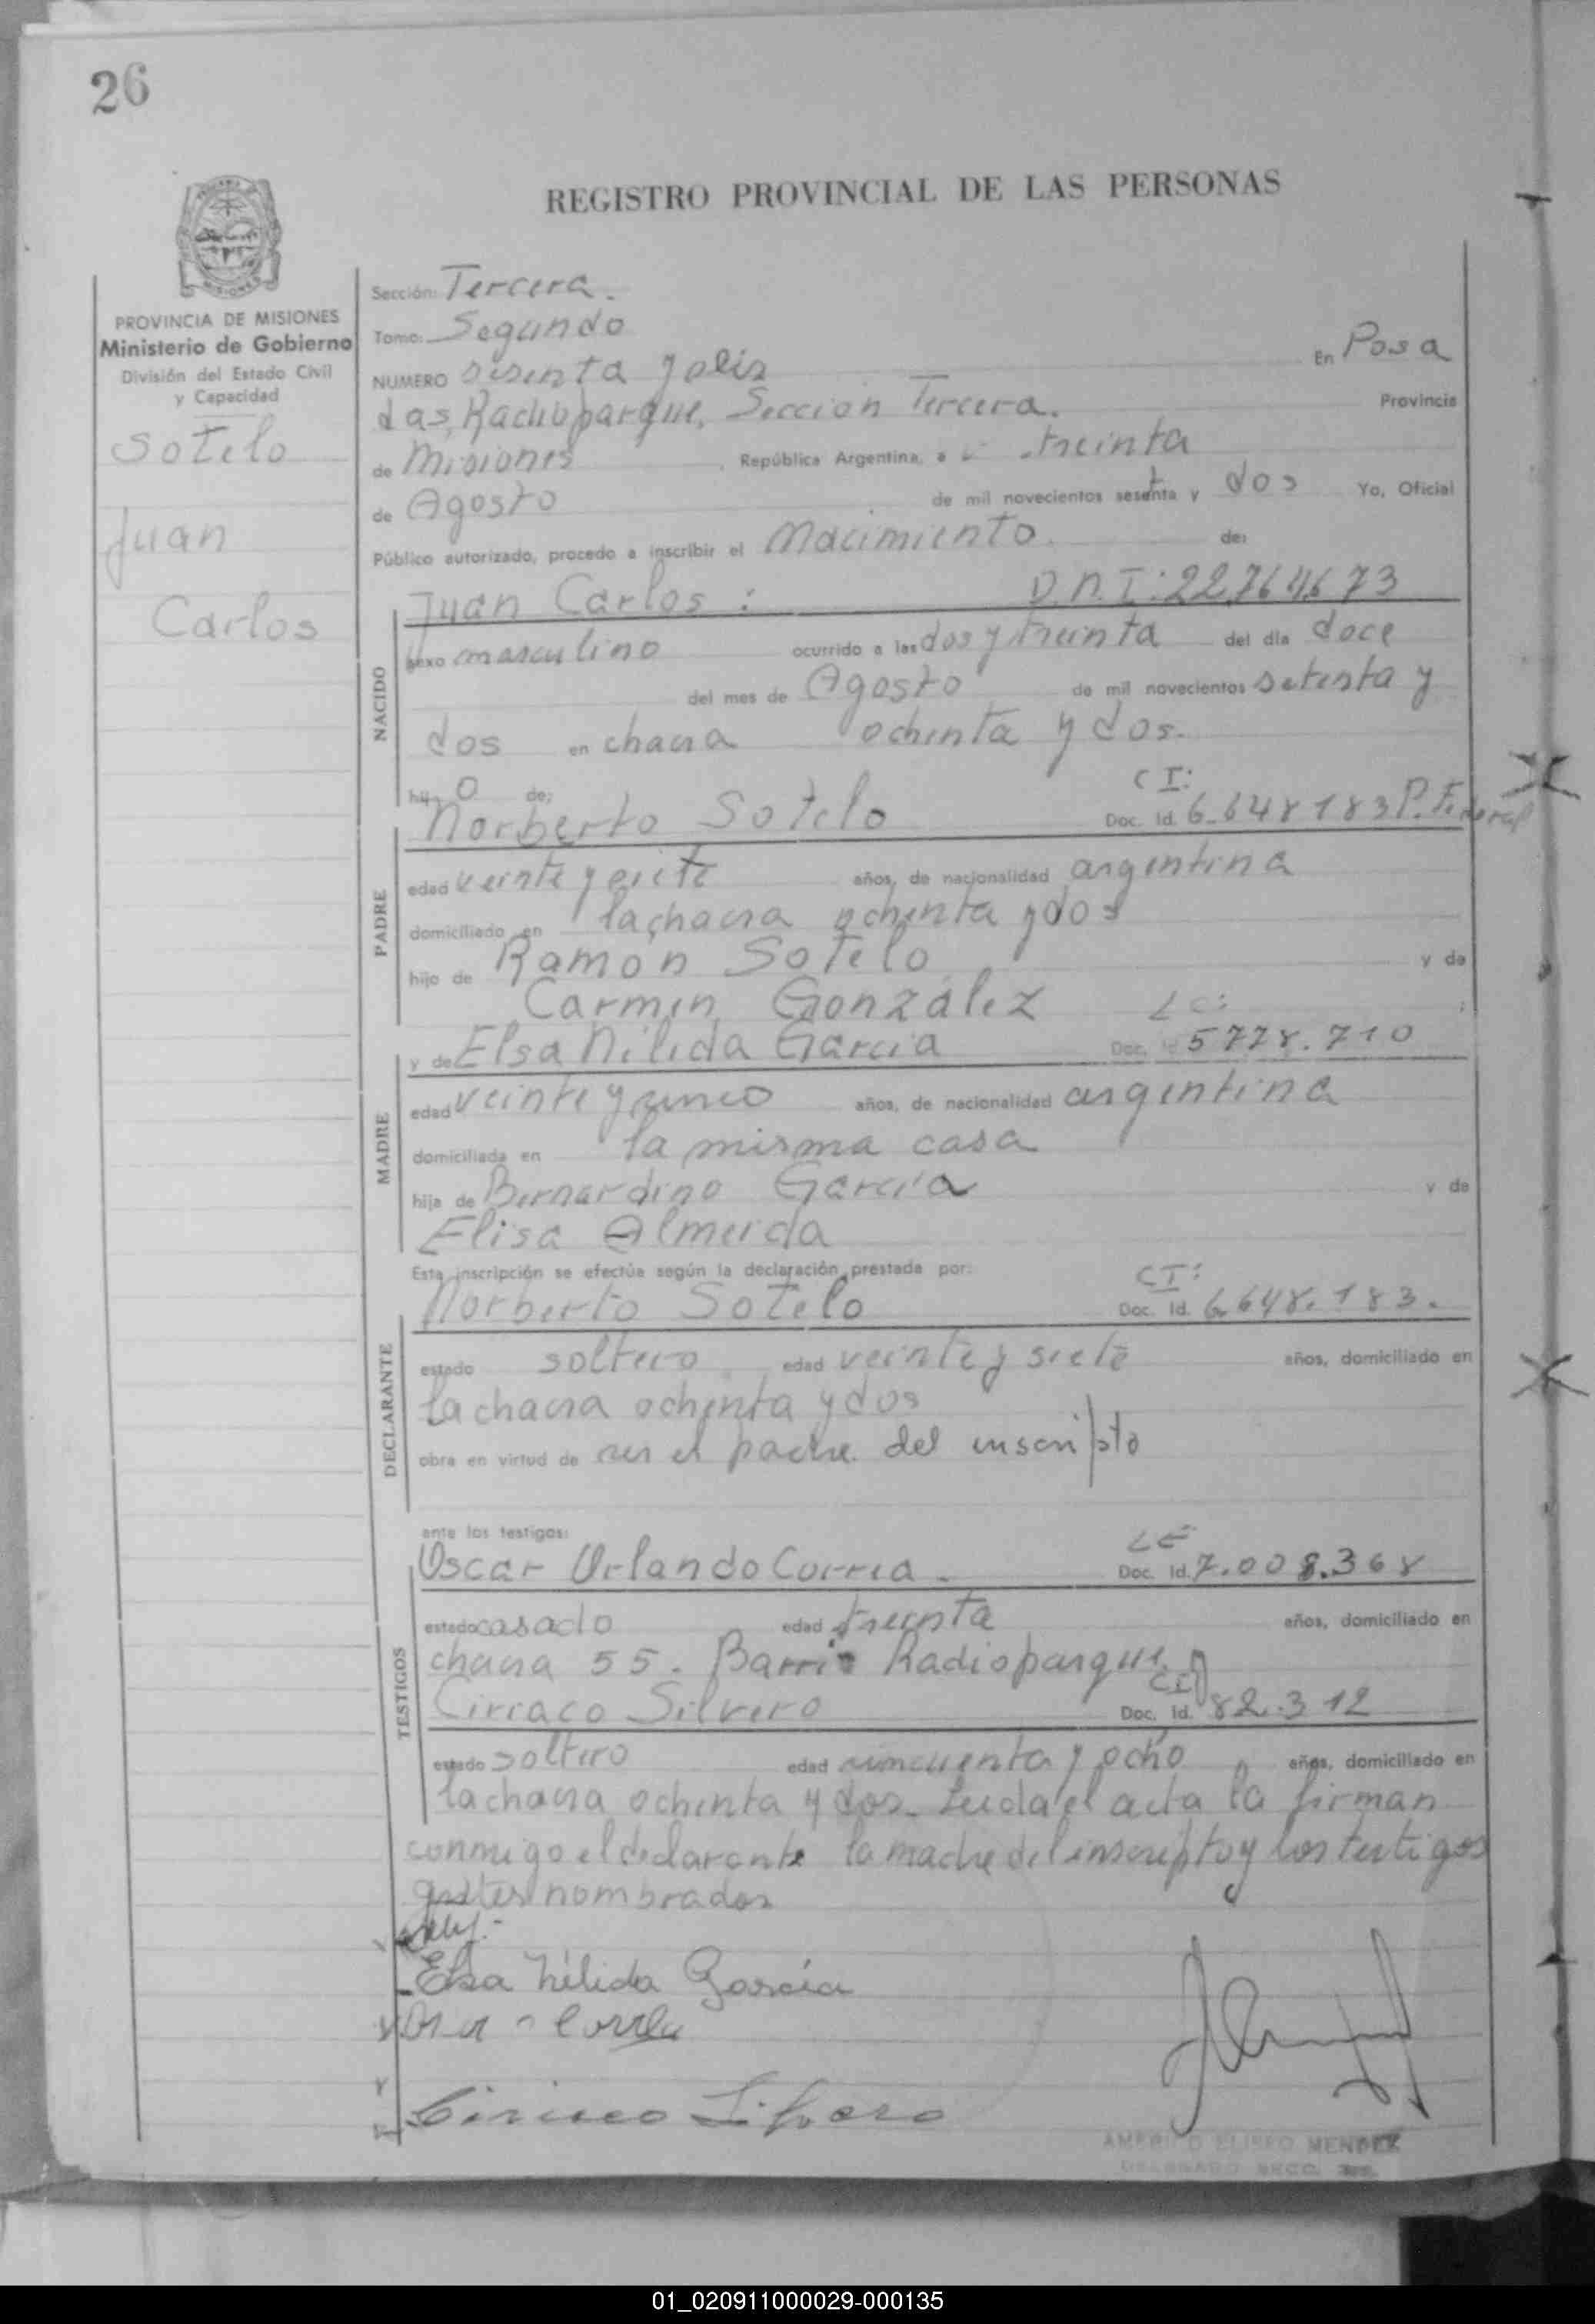 26
REGISTRO PROVINCIAL DE LAS PERSONAS
PROVINCIA DE MISIONES
Ministerio de Gobierno
División del Estado Civil
y Capacidad
Sotelo
Juan
Carlos
Sección: Tercera.
Tomo: Segundo
NUMERO sesenta y En Posa
das, Radioparque, Sección Tercera. Provincia
de Misiones, República Argentina, a treinta
de Agosto de mil novecientos sesenta y dos Yo, Oficial
Público autorizado, procedo a inscribir el Nacimiento de:
Juan Carlos: D.N.I: 22.764.673
NACIDO
sexo masculino ocurrido a las dos y treinta del día doce
del mes de Agosto de mil novecientos setenta y
dos en chacra ochenta y dos.
hijo de;
CI:
Norberto Sotelo Doc. Id. 6.648183 P. Federal
PADRE
edad veinte y siete años, de nacionalidad argentina
domiciliado en la chacra ochenta y dos
hijo de Ramon Sotelo y de
Carmen González
LC:
y de Elsa Nélida García Doc. Id 5778.710
MADRE
edad veinte y años, de nacionalidad argentina
domiciliada en la misma casa
hija de Bernardino García y de
Elisa Almeida
Esta inscripción se efectúa según la declaración prestada por:
CI:
Norberto Sotelo Doc. Id. 6.648.183.
DECLARANTE
estado soltero edad veinte y siete años, domiciliado en
la chacra ochenta y dos
obra en virtud de ser el padre del inscripto
ante los testigos:
LE
Oscar Orlando Correa. Doc. Id. 7.008.368
TESTIGOS
estado casado edad treinta años, domiciliado en
chacra 55. Barrio Radioparque
CI
Ciriaco Silvero Doc. Id. 82.312
estado soltero edad cincuenta y ocho años, domiciliado en
la chacra ochenta y dos. Leida el acta la firman
conmigo el declarante la madre del inscripto y los testigos
antes nombrados
Elsa Nélida García
Correa
Ciriaco Silvero
AMERICO ELISEO MENDEZ
DELEGADO SECC.
01_020911000029-000135